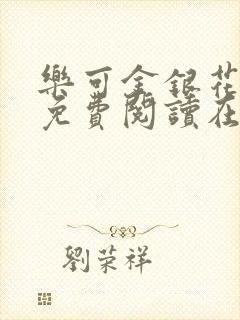 樂可金銀花
免費閱讀在
劉荣祥